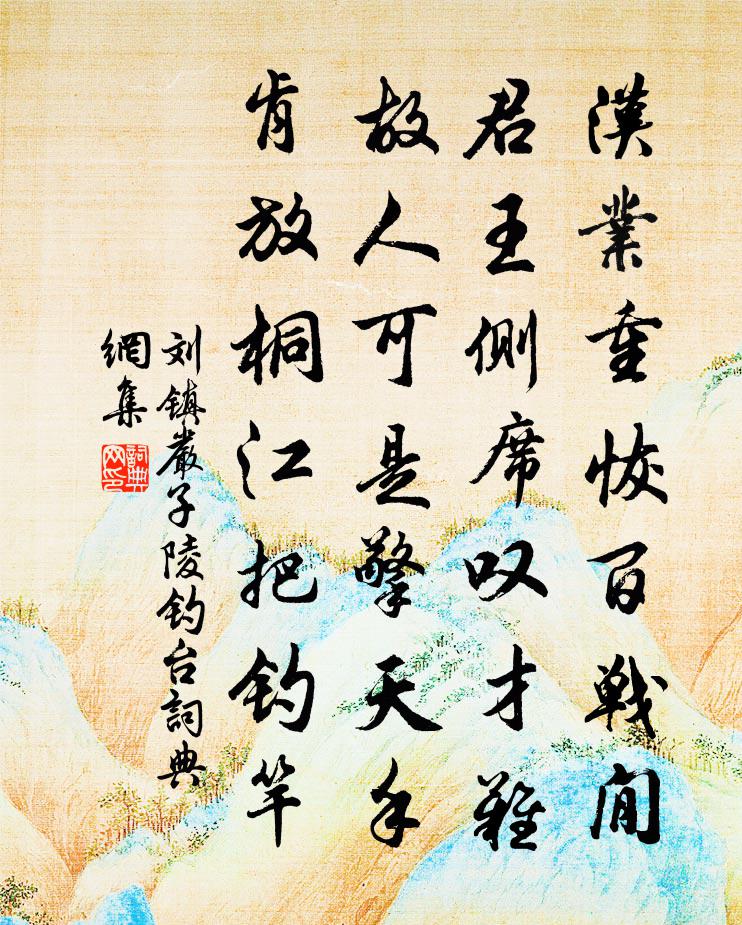 漢業重恢百戰間
君王側席叹才難
故人可是擎天手
肯放桐江把釣竿
刘鎮嚴子陵釣台詞典
網集
詞典
网印